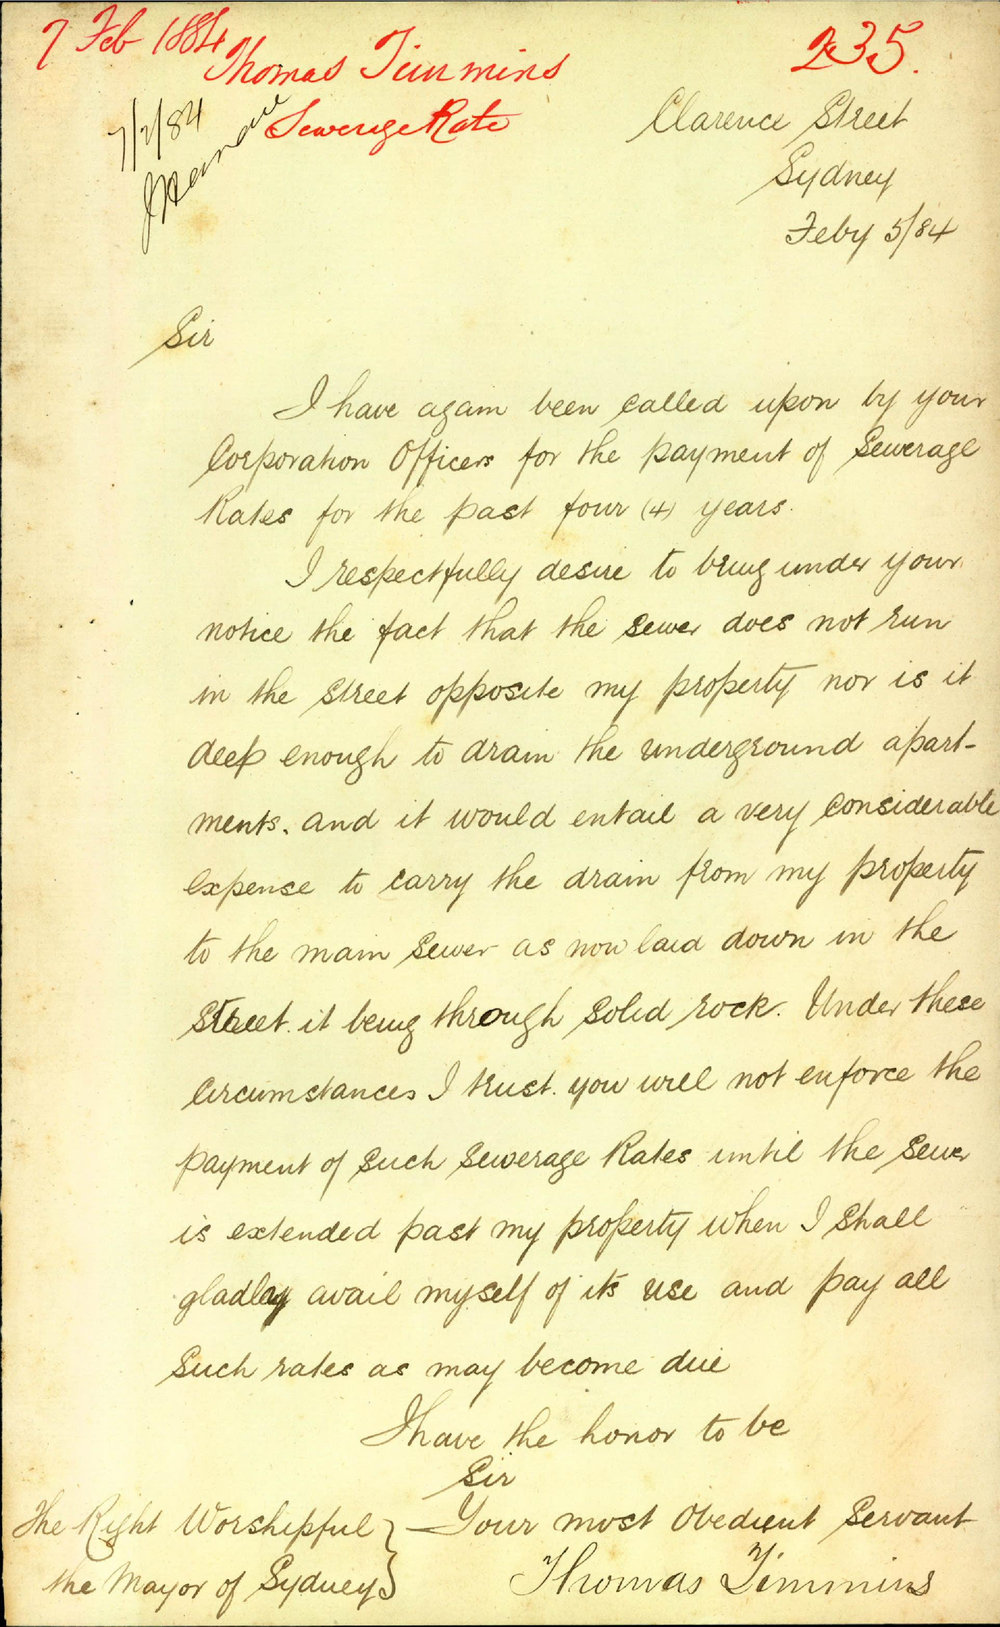 7 Feb 1884
Thomas Timmins
235.
Sewerage Rate
7/2/84
Clarence Street
Sydney
Feby 5/84
Sir
I have again been called upon by your
Corporation Officers for the payment of Sewerage
Rates for the past four (4) years.
I respectfully desire to bring under your
notice the fact that the sewer does not run
in the street opposite my property nor is it
deep enough to drain the underground apart-
ments. and it would entail a very considerable
expense to carry the drain from my property
to the main sewer as now laid down in the
street. it being through solid rock. Under these
circumstances I trust. you will not enforce the
payment of such sewerage Rates until the sewer
is extended past my property when I shall
gladly avail myself of its use and pay all
such rates as may become due
I have the honor to be
Sir
Your most Obedient Servant
Thomas Timmins
The Right Worshipful
the Mayor of Sydney